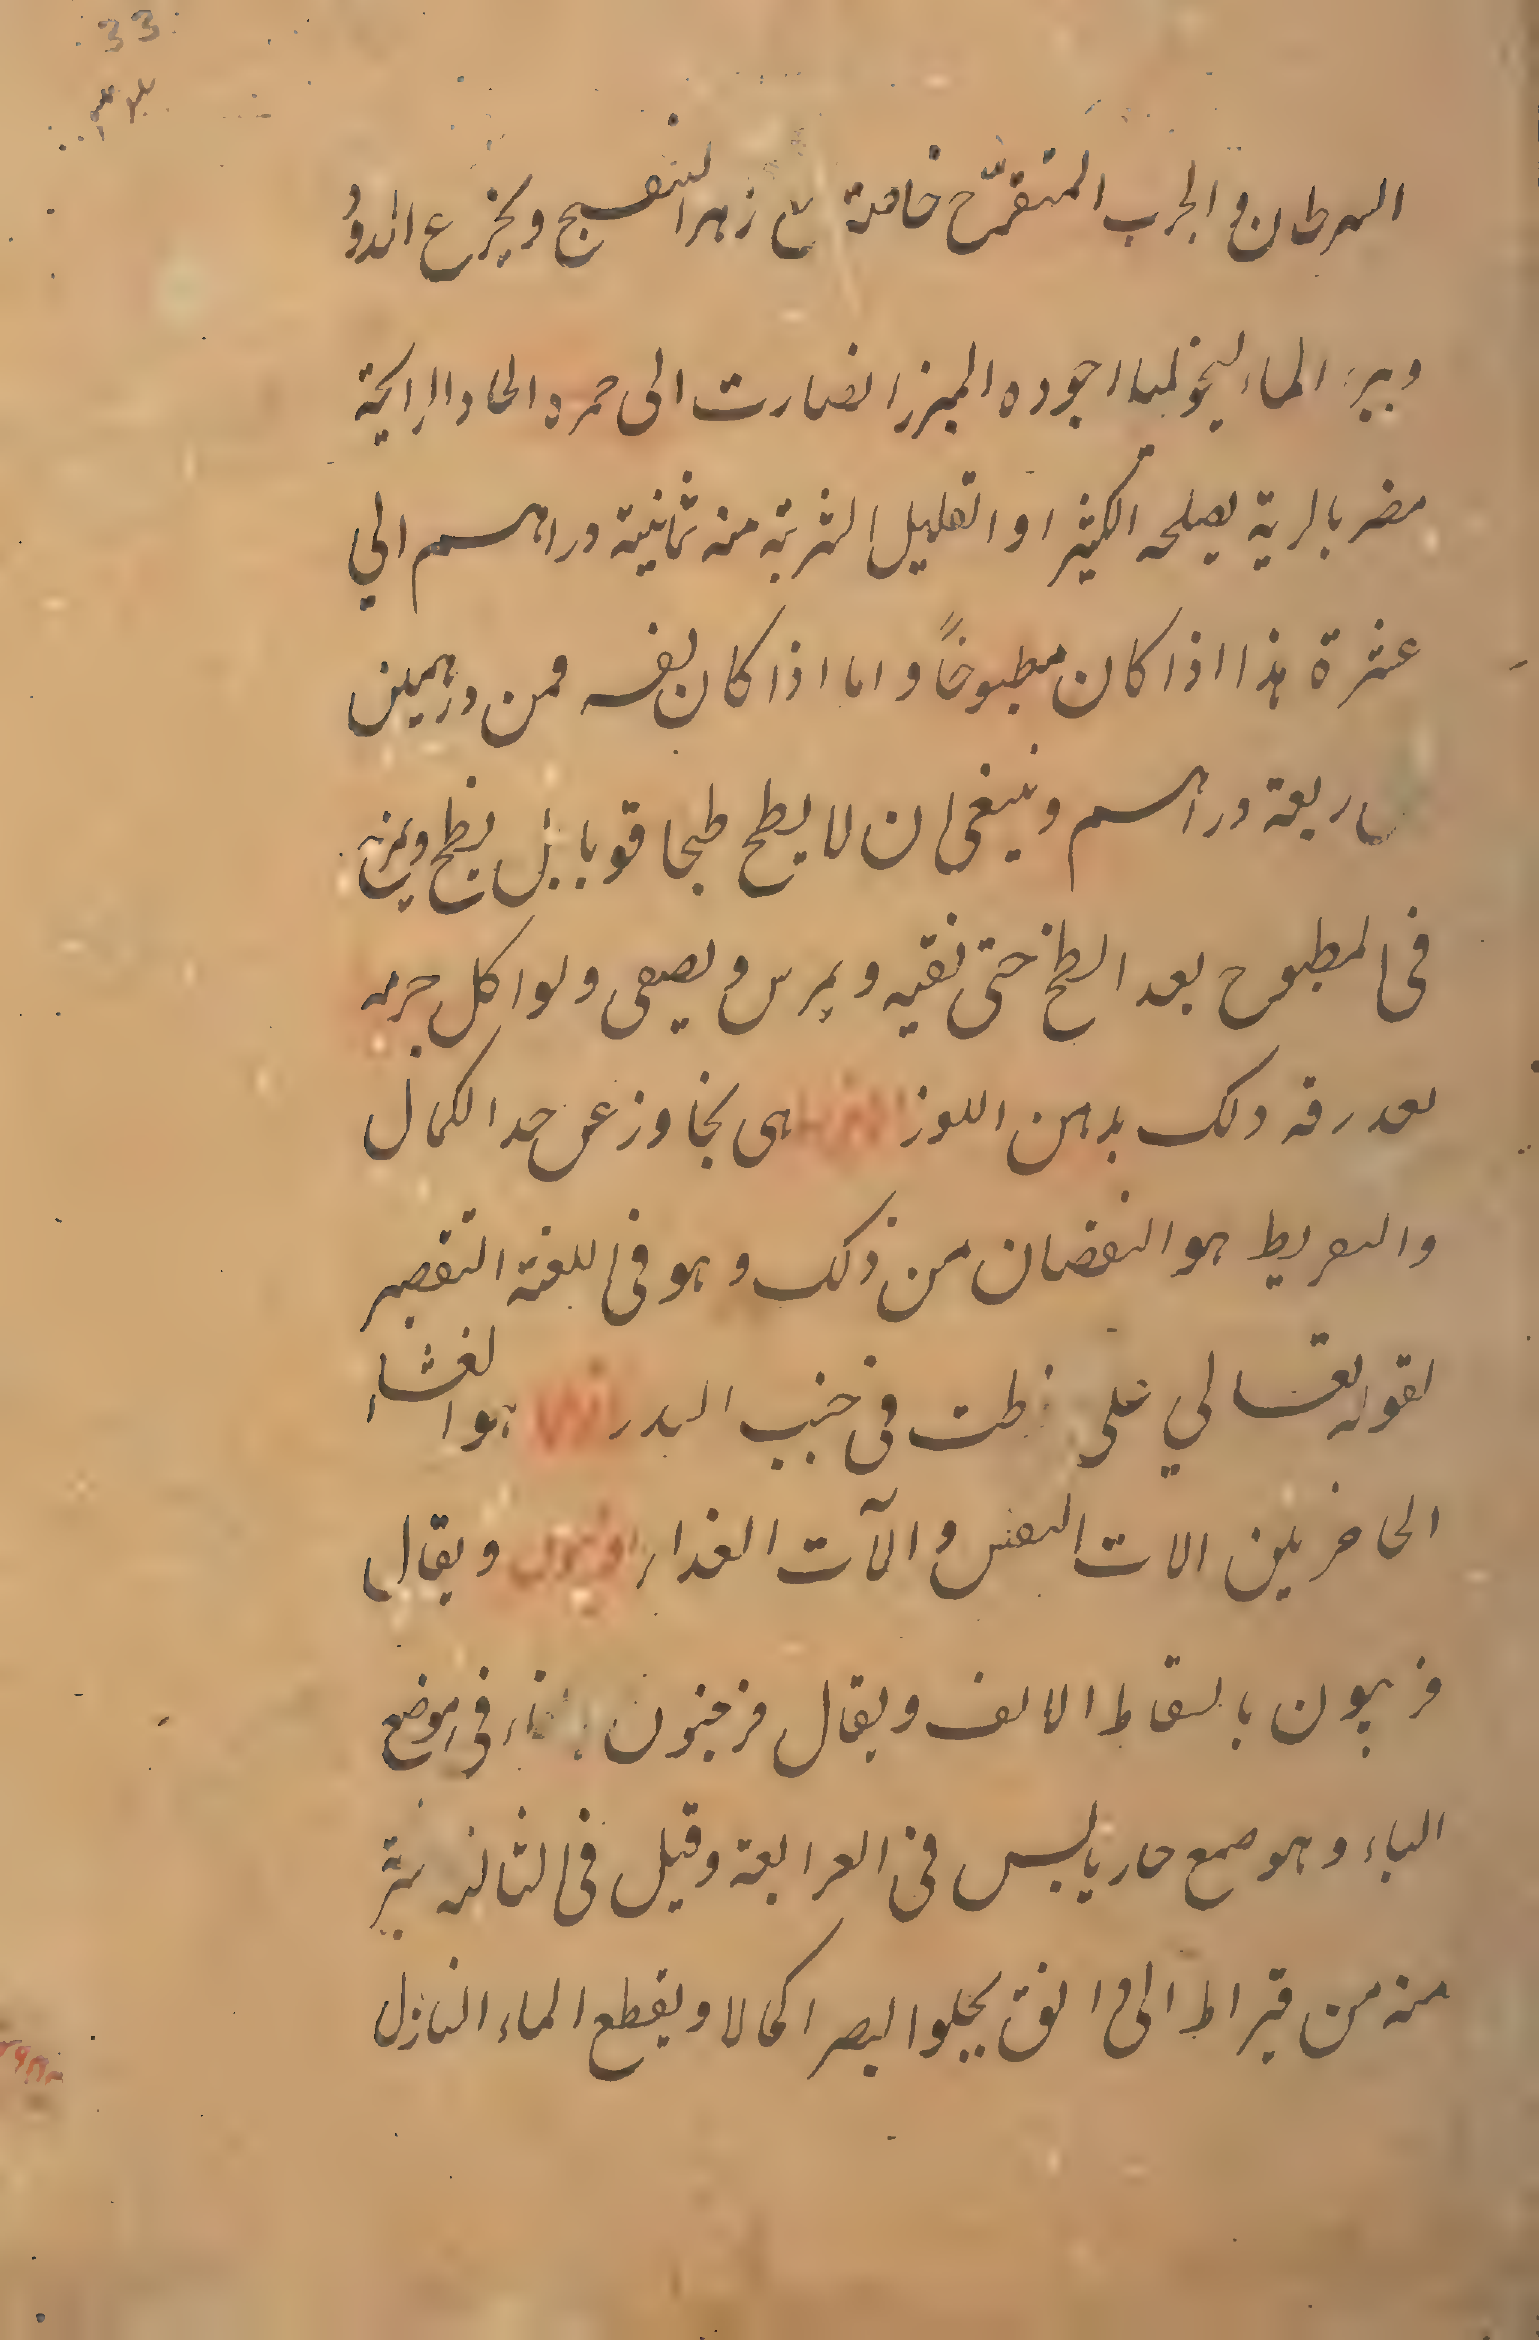 33
السرطان والجرب المتقرّح خاصة مع زهر البنفسج ويخرع الدود
ويبرء الماليخوليا اجوده المبزر الضارت الى حمرة الحاد الرايحة
مضر بالرية يصلحه الكثيرا و التقليل الشربة منه ثمانية دراهم الي
عشرة هذا اذا كان مطبوخاً و اما اذا كان بنفسه فمن درهمين
اربعة دراهم وينبغي ان لا يطبخ طبخا قويا بل يطبخ ويمزج
في المطبوخ بعد الطبخ حتى نقيه ويمرس ويصفى ولو اكل جرمه
بعد رقه دلك بدهن اللوز هى تجاوز عن حد الكمال
والتفريط هو النقصان من ذلك وهو في اللغة التقصير
لقوله تعالي على فرطت في جنب الله هو الغشاء
الحاجز بين الات النفس و الآت الغداء ويقال
فربيون باسقاط الالف ويقال فرفيون في موضع
الباء وهو صمغ حار يابس في الرابعة وقيل في الثالثه يشرب
منه من قيراط الى دانق يجلوا البصر اكحالا ويقطع الماء النازل